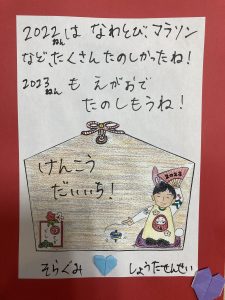 2022ねんは なわとび、マラソン
など、たくさん たのしかったね！
2023ねん も えがおで
たのしもうね！
けんこう
だいいち！
2023
そらぐみ
しょうたせんせい